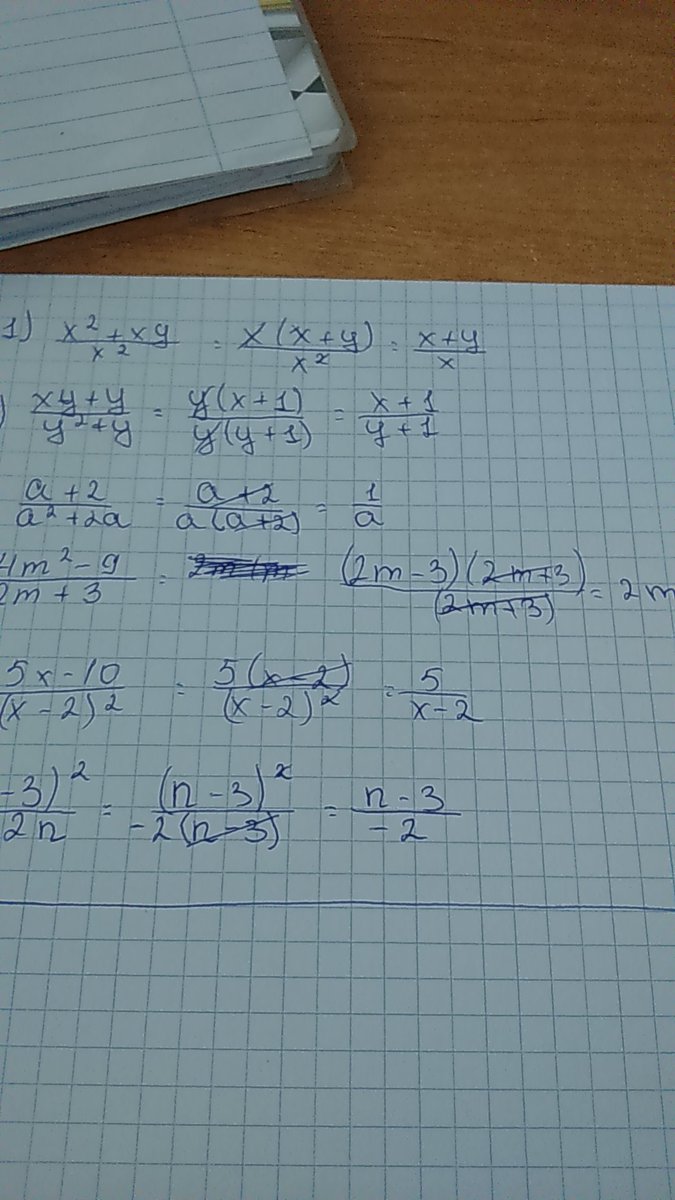 1) x²+xy/x² = x(x+y)/x² = x+y/x
) xy+y/y²+y = y(x+1)/y(y+1) = x+1/y+1
a+2/a²+2a = a+2/a(a+2) = 1/a
4m²-9/2m+3 = (2m-3)(2m+3)/(2m+3) = 2m
5x-10/(x-2)² = 5(x-2)/(x-2)² = 5/x-2
-3)²/2n = (n-3)²/-2(n-3) = n-3/-2